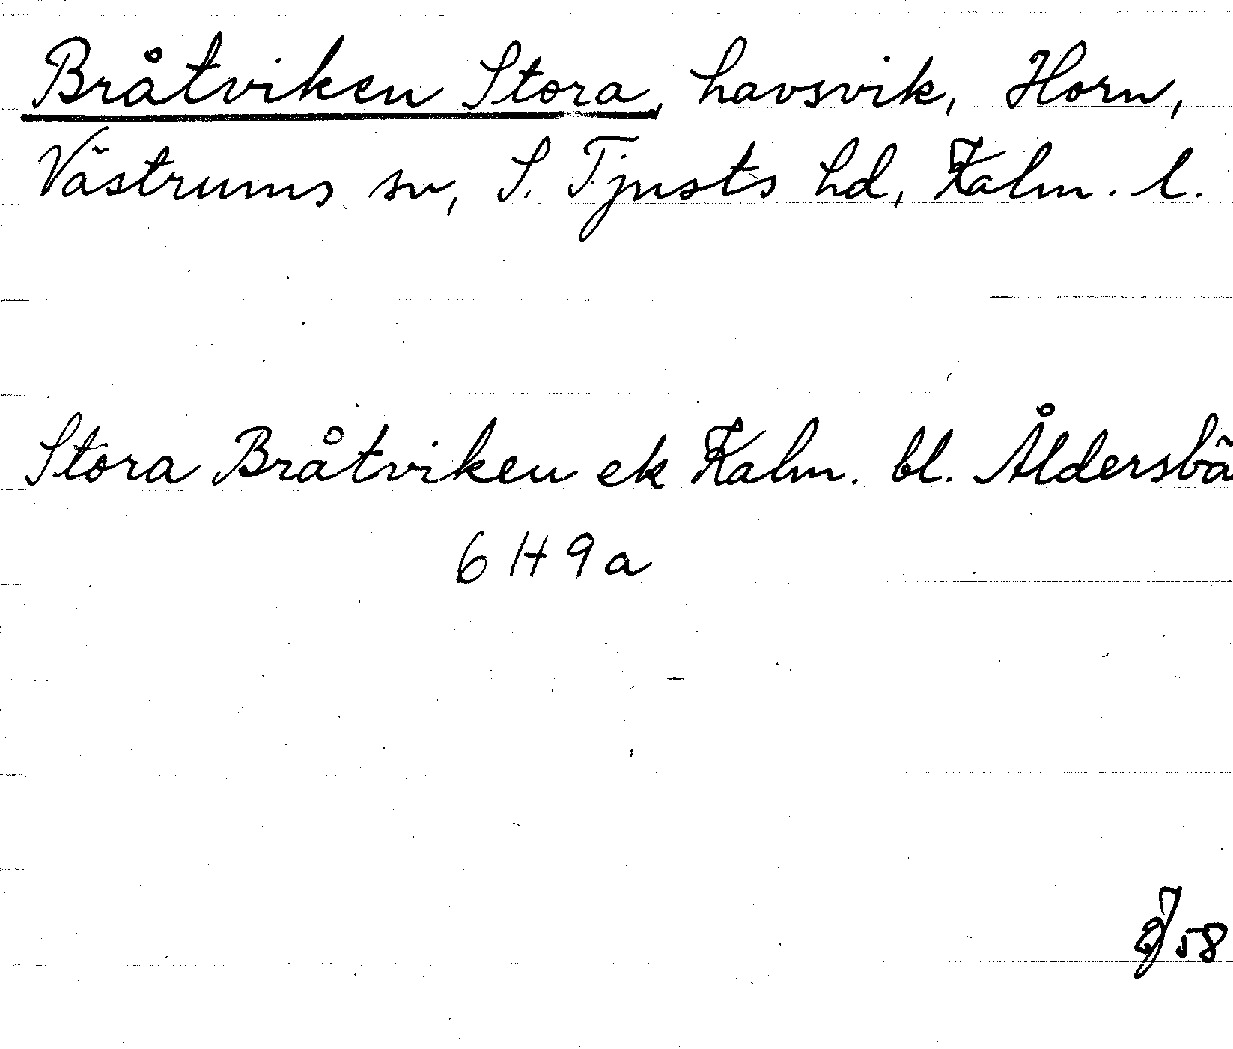 Bråtviken Stora, havsvik, Horn,
Västrums sn, S. Tjusts hd, Kalm. l.
Stora Bråtviken ek Kalm. bl. Åldersbä
6 H 9 a
58